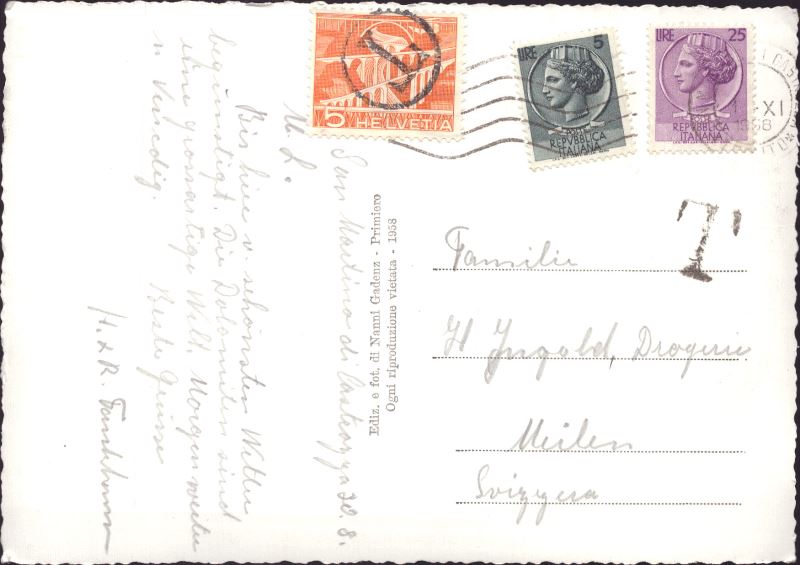 San Martino di Castrozza 30. 8.
M. L.
Bis hier v. schönsten Wetter
begünstigt. Die Dolomiten sind
eine grossartige Welt. Morgen weiter
n Venedig.
Beste Grüsse
H. & R.
Ediz. e fot. di Nanni Gadenz - Primiero
Ogni riproduzione vietata - 1958
5 HELVETIA
T
LIRE 5
REPVBBLICA
ITALIANA
LIRE 25
REPVBBLICA
ITALIANA
XI
1958
T
Familie
H Ingold, Drogerie
Meilen
Svizzera